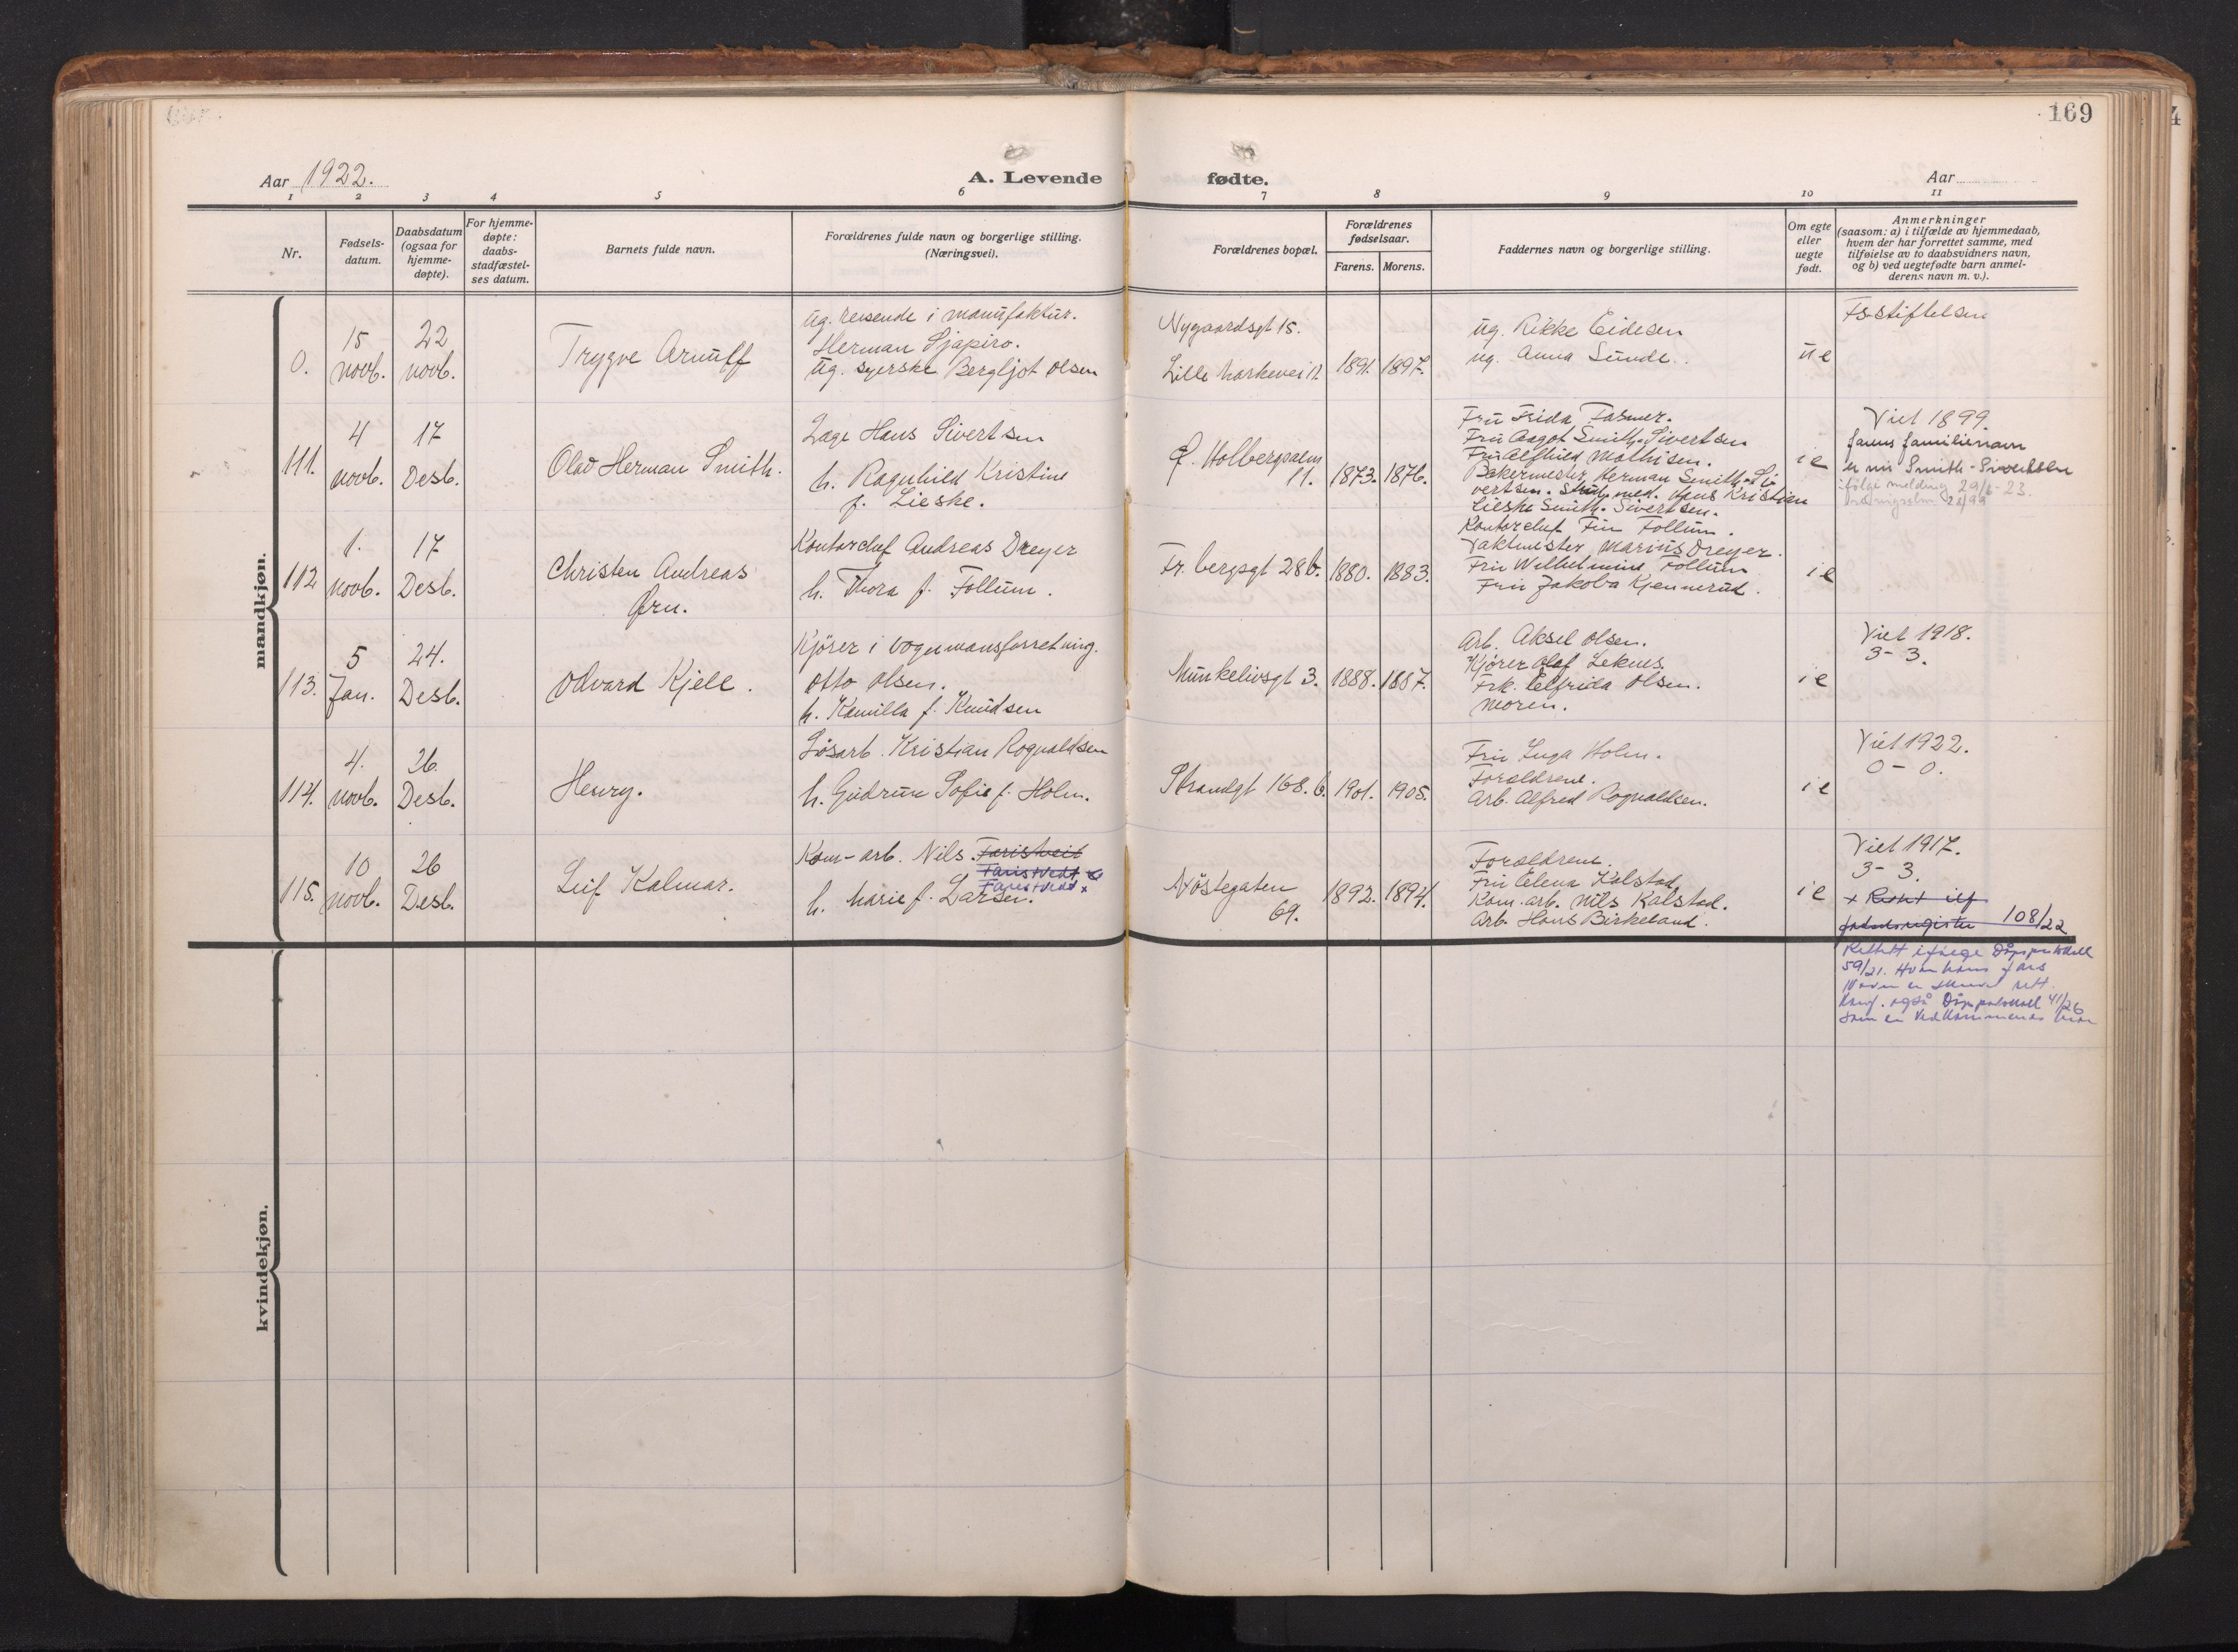 169
Aar 1922.
A. Levende fødte.
Aar
1 2 3 4 5 6 7 8 9 10 11
Nr.
Fødsels-
datum.
Daabsdatum
(ogsaa for
hjemme-
døpte).
For hjemme-
døpte:
daabs-
stadfæstel-
ses datum.
Barnets fulde navn.
Forældrenes fulde navn og borgerlige stilling.
(Næringsvei).
Forældrenes bopæl.
Forældrenes
fødselsaar.
Farens. Morens.
Faddernes navn og borgerlige stilling.
Om egte
eller
uegte
født.
Anmerkninger
(saasom: a) i tilfælde av hjemmedaab,
hvem der har forrettet samme, med
tilføielse av to daabsvidners navn,
og b) ved uegtefødte barn anmel-
derens navn m. v.).
mandkjøn.
0.
15
novb.
22
novb.
Trygve Arnulf
ug. reisende i manufaktur.
Herman Sjapiro.
ug. syerske Bergljot Olsen
Nygaardsgt 15.
Lille Markevei 11.
1891. 1897.
ug. Rikke Eidesen
ug. Anna Sunde.
u e
Fs-stiftelsen
111.
4
novb.
17
Desb.
Olav Herman Smith.
Læge Hans Sivertsen
h. Ragnhild Kristine
f. Lieske.
L. Holbergsalm
11.
1873. 1876.
Fru Frida Fasmer.
Fru Aagot Smith-Sivertsen
Fru Alfhild Mathisen.
Bakermester Herman Smith-Si
vertsen. Stud. med. Hans Kristian
Lieske Smith-Sivertsen.
i e
Viet 1899.
farens familienavn
er nu Smith-Sivertsen
ifølge melding 29/6-23.
112
1.
novb.
17
Desb.
Christen Andreas
Ørn.
Kontorchef Andreas Dreyer
h. Thora f. Follum.
Fr. bergsgt 28b.
1880. 1883.
Kontorchef Fin Follum.
Vaktmester Marius Dreyer.
Fru Wilhelmine Follum
Fru Jakoba Kjennerud.
i e
113.
5
Jan.
24.
Desb.
Odvard Kjell.
Kjører i vognmansforretning.
Otto Olsen.
h. Kamilla f. Knudsen
Munkelivsgt 3.
1888. 1887.
Arb. Aksel Olsen.
Kjører Olaf Leknes.
Frk. Elfrida Olsen.
Moren.
i e
Viet 1918.
3-3.
114.
4.
novb.
26.
Desb.
Henry.
Løsarb. Kristian Rognaldsen
h. Gudrun Sofie f. Holm.
Strandgt 168.b.
1901. 1905.
Fru Inga Holm.
Forældrene.
Arb. Alfred Rognaldsen.
i e
Viet 1922.
0-0.
115.
10
novb.
26
Desb.
Leif Kalmar.
Kom-arb. Nils Faristveit
Faristvedt
Faristvedt x
h. Marie f. Larsen.
Nøstegaten
69.
1892. 1894.
Forældrene.
Fru Elena Kalstad
Kom.arb. Nils Kalstad.
Arb. Hans Birkeland.
i e
Viet 1917.
3-3.
x Rettet ilf
fødselsregister 108/22
Rettet ifølge Dåpsprotokoll
59/21. Hvor hans fars
Navn er skrevet rett.
Konf. også Dåpsprotokoll 41/26
som er Vedkommendes bror
kvindekjøn.